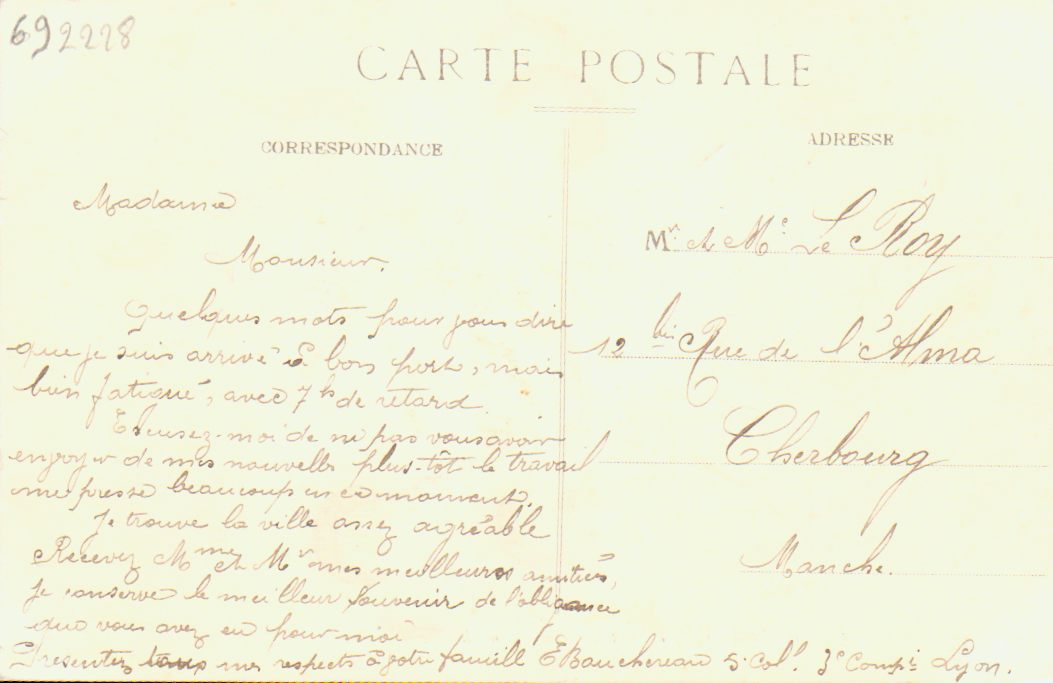 692228
CARTE POSTALE
CORRESPONDANCE
ADRESSE
Madame
Monsieur.
Quelques mots pour vous dire
que je suis arrivé à bon port, mais
bien fatigué, avec 7 hs de retard.
Escusez-moi de ne pas vous avoir
envoyer de mes nouvelles plus-tôt le travail
me presse beaucoup en ce moment.
Je trouve la ville assez agréable
Recevez Mme et Mr mes meilleures amitiés,
je conserve le meilleur souvenir de l'obligeance
que vous avez eu pour moi
Presentez mes respects à votre famille EBauchereau S. Coll. 3e Compie Lyon.
Mr. et Me Le Roy
12 bis Rue de l'Alma
Cherbourg
Manche.